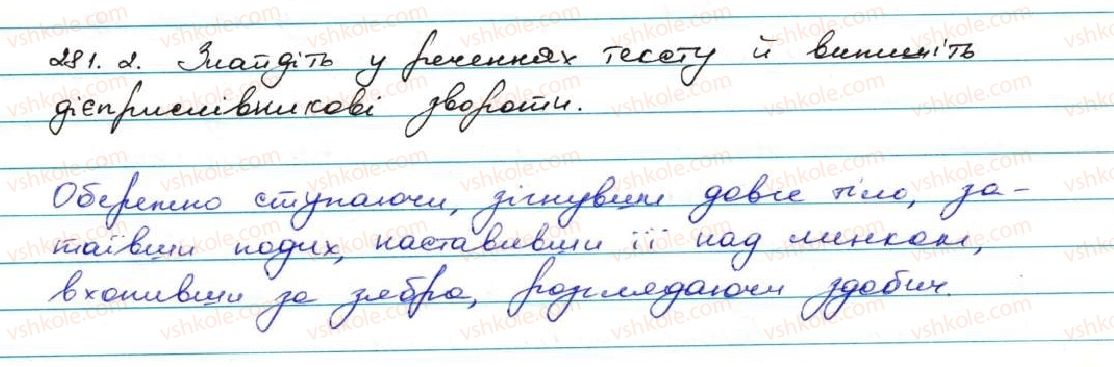 281. 2. Знайдіть у реченнях тексту й випишіть
дієприслівникові звороти.
Обережно ступаючи, зігнувши довге тіло, за-
таївши подих, наставивши її над линком,
вхопивши за зябра, розглядаючи здобич.